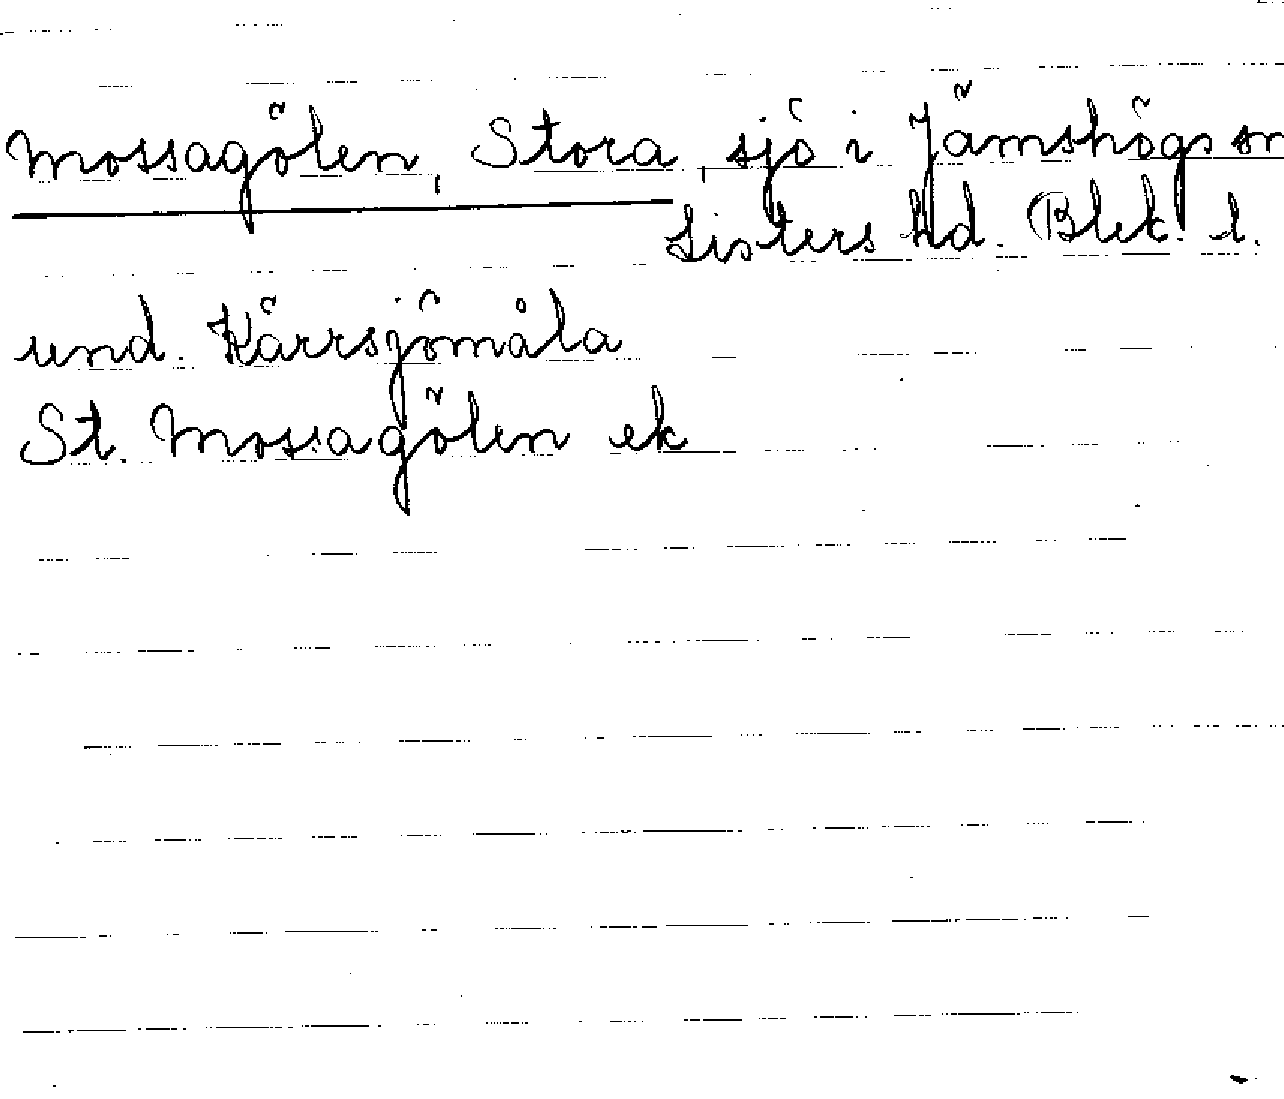 Mossagölen, Stora, sjö i Jämshögs sn
Listers hd. Blek. l.
und. Kärrsjömåla
St. Mossagölen ek